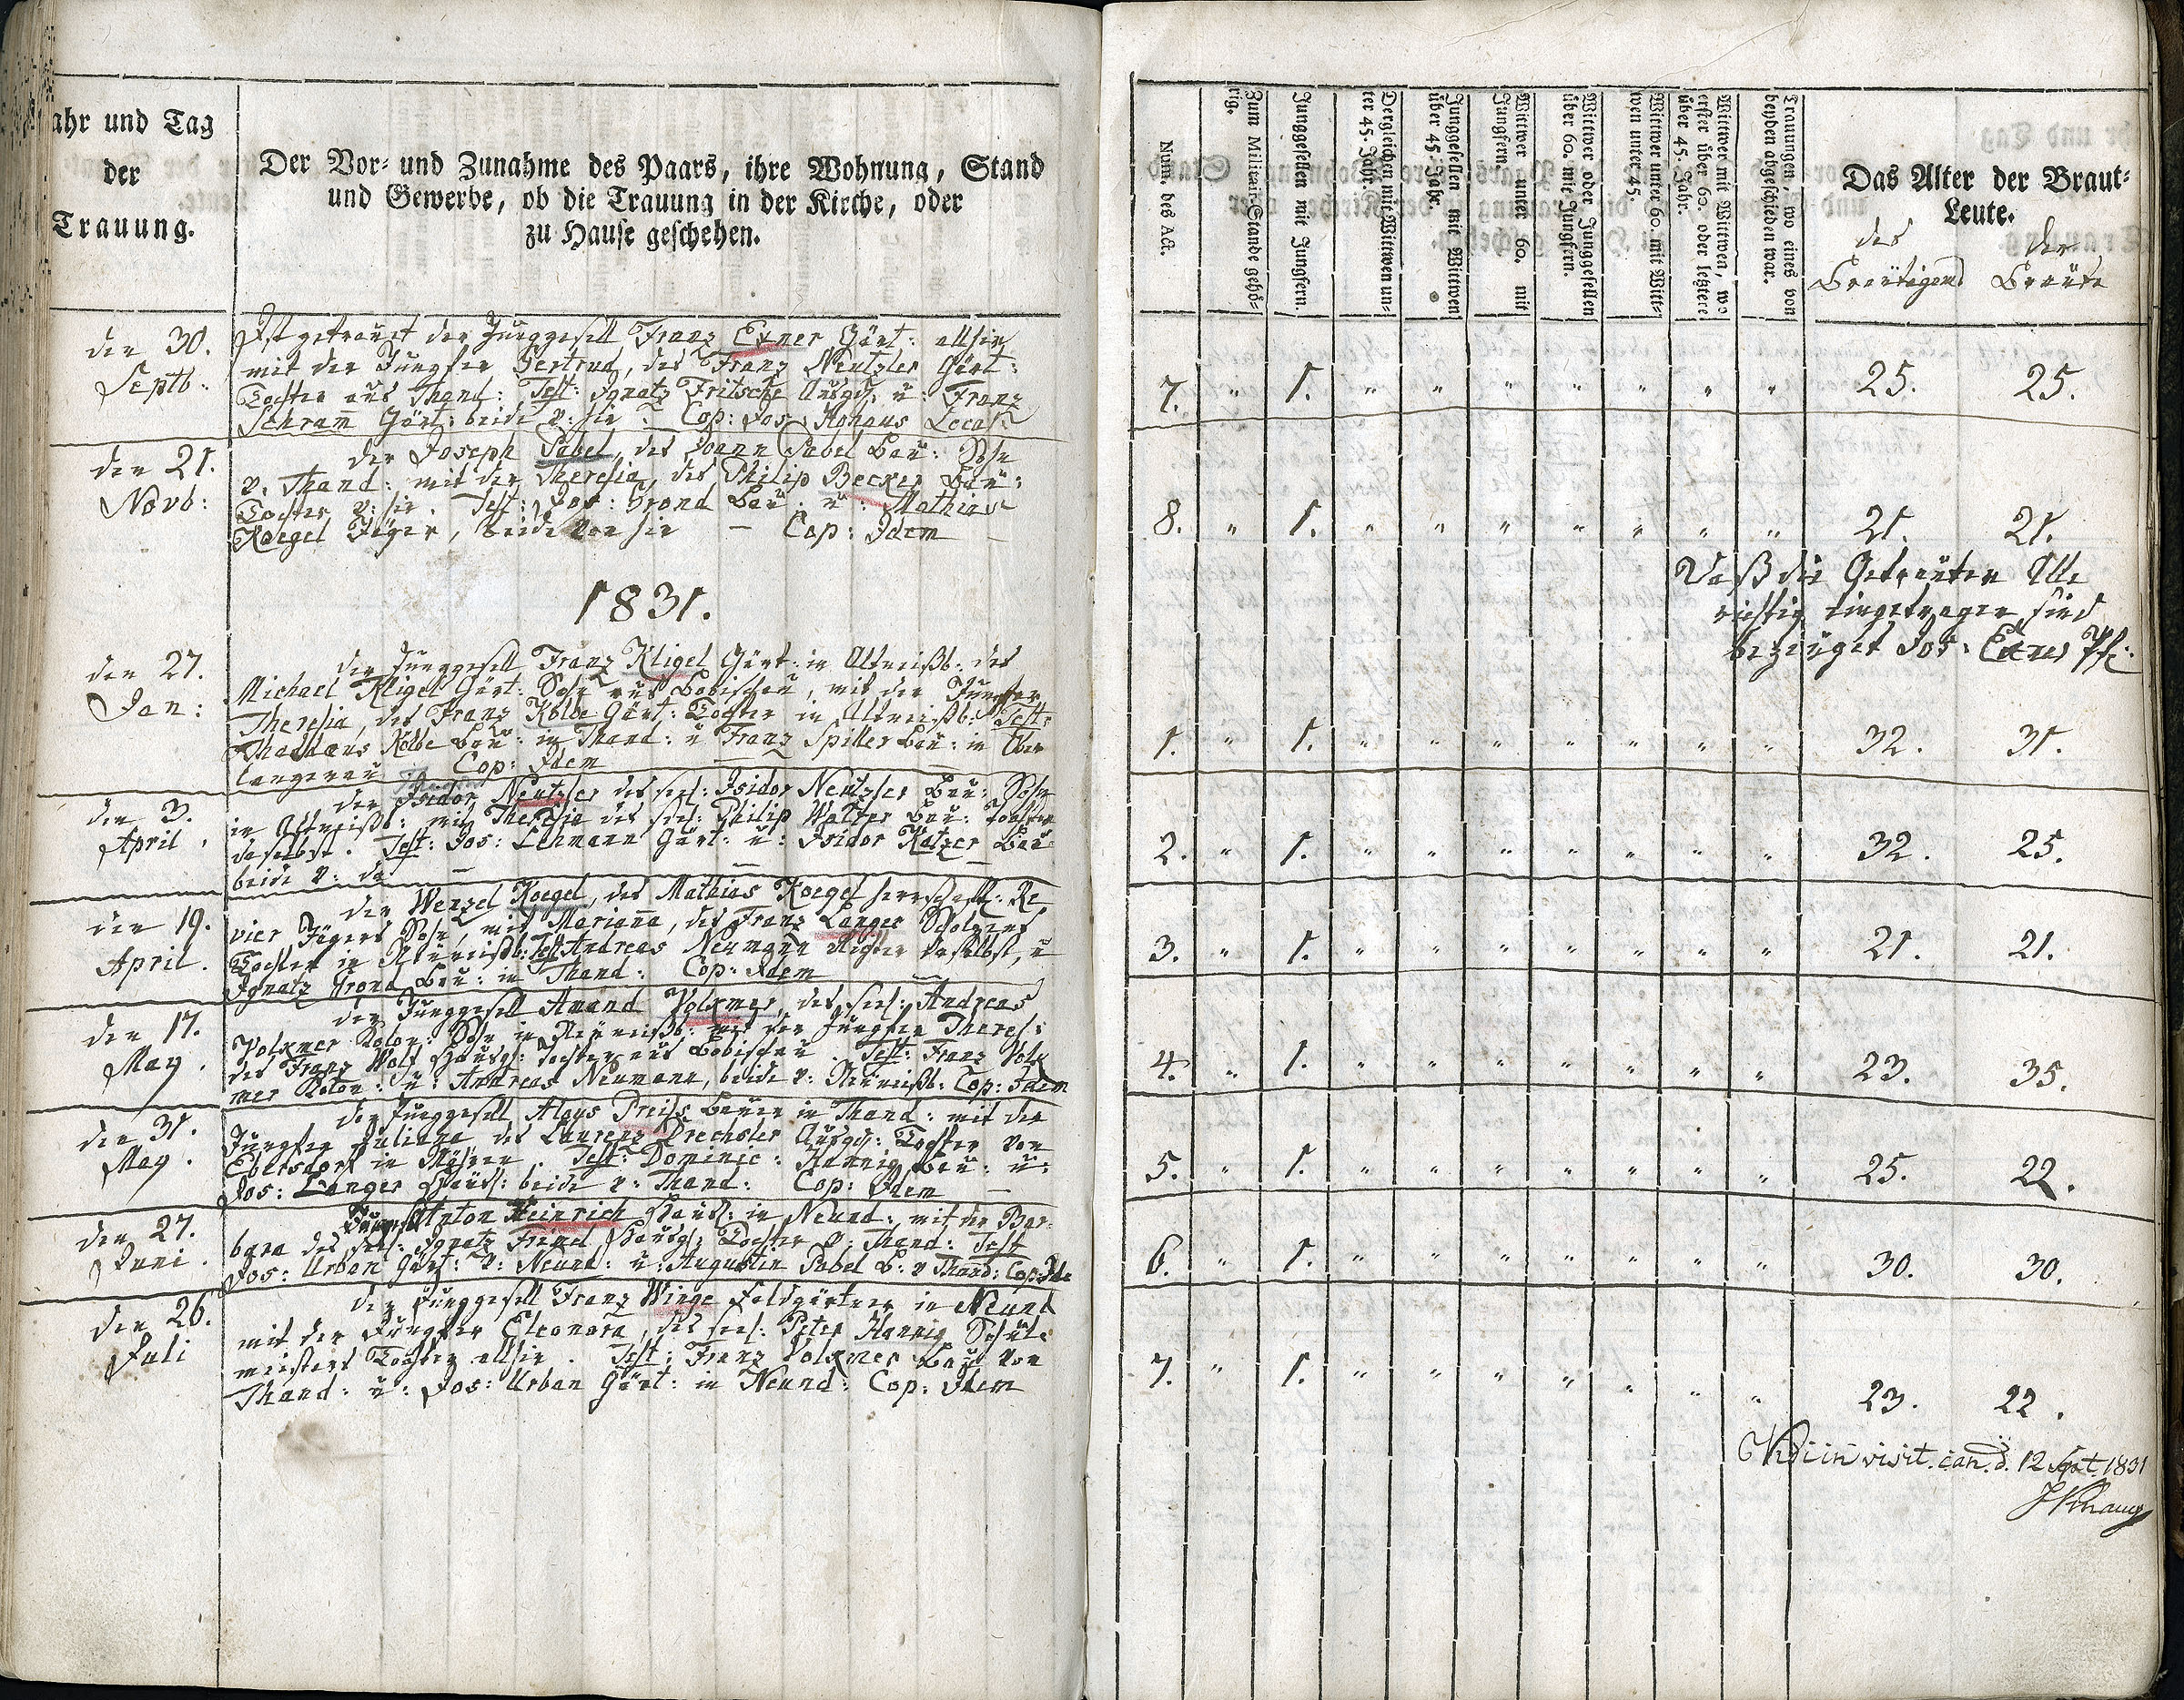 ahr und Tag
der
Trauung.
Der Vor- und Zunahme des Paars, ihre Wohnung, Stand
und Gewerbe, ob die Trauung in der Kirche, oder
zu Hause geschehen.
den 30.
Septb:
Ist getrauet der Junggesell Franz Exner Gärt: allhir
mit der Jungfer Gertrud, des Franz Neutzler Gärt:
Tochter aus Thand: Test: Ignatz Fritsche Ausged: u: Franz
Schram̅ Gärt: beide v: hir Cop: Jos: Locat:
den 21.
Novb:
der Joseph Pabel, des Joann Pabel Bau: Sohn
v. Thand: mit der Theresia, des Philip Becker Bau:
Tochter v: hir. Test: Jos: Grond Bau: u: Mathias
Koegel Jäger, beide von hir — Cop: Idem
1831.
den 27.
Jan:
der Junggesell Franz Kligel Gärt: in Altweißb: des
Michael Kligel Gärt: Sohn aus Bobischau, mit der Jungfer
Theresia, des Franz Kolbe Gärt: Tochter in Altweißb: Test:
Thaddaeus Kolbe Bau: in Thand: u Franz Spiller Bau: in Ober
langenau Cop: Idem
den 3.
April.
der Isidor Neutzler des seel: Isidor Neutzler Bau: Sohn
in Altweißb: mit Theresia des seel: Philip Walter Bau: Tochter
daselbst. Test: Jos: Lehmann Gärt: u: Isidor Katzer Bau
beide v: da —
den 19.
April.
der Wenzel Koegel, des Mathias Koegel herrschaftl: Re
vier Jägers Sohn, mit Marian̅a, des Franz Langer Scholzens
Tochter in Neuweißb: Test: Andreas Neumann daselbst, u
Ignatz Grond Bau: in Thand: Cop: Idem
den 17.
May.
der Junggesell Amand Volkmer, des seel: Andreas
Volkmer Kolon: Sohn in Neuweißb: mit der Jungfer Theres:
des Franz Wolf Hausg: Tochter aus Bobischau. Test: Franz Volk
mer Kolon: u: Andreas Neumann, beide v: Neuweißb: Cop: Idem
den 31.
May.
der Junggesell Aloys Preiss Bauer in Thand: mit der
Jungfer Juliana des Laurenz Drechsler Ausged: Tochter von
Ebersdorf in Mähren. Test: Dominic: Hannig Bau: u:
Jos: Langer Häusl: beide v: Thand: Cop: Idem —
den 27.
Juni.
Anton Heinrich Häusl: in Neund: mit der Bar
bara des seel: Ignatz Hausg: Tochter v: Thand: Test
Jos: Urban Gärt: v: Neund: u: Augustin Pabel B: v Thand: Cop: Ide
den 26.
Juli
der Junggesell Franz Winge Feldgärtner in Neund
mit der Jungfer Eleonora, des seel: Peter Hannig Schul
meisters Tochter allhir. Test: Franz Volkmer Bau von
Thand: u: Jos: Urban Gärt: in Neund: Cop: Idem
Num. des Act.
Zum Militair-Stande gehö-
rig.
Junggesellen mit Jungfern.
Dergleichen mit Wittwen un-
ter 45. Jahr.
Junggesellen mit Wittwen
über 45. Jahr.
Wittwer unter 60. mit
Jungfern.
Wittwer oder Junggesellen
über 60. mit Jungfern.
Wittwer unter 60. mit Witt-
wen unter 45.
Wittwer mit Wittwen, wo
erster über 60. oder letztere
über 45. Jahr.
Trauungen, wo eines von
beyden abgeschieden war.
Das Alter der Braut-
Leute.
des der
Bräutigams Braut
7. " 1. " " " " " " " 25. 25.
8. " 1. " " " " " " " 21. 21.
Daß die Getrauten Alle
richtig eingetragen sind
bezeuget Jos: Exner Pf:
1. " 1. " " " " " " " 32. 31.
2. " 1. " " " " " " " 32. 25.
3. " 1. " " " " " " " 21. 21.
4. " 1. " " " " " " " 23. 35.
5. " 1. " " " " " " " 25. 22.
6. " 1. " " " " " " " 30. 30.
7. " 1. " " " " " " " 23. 22.
Vidi in visit. can. d. 12 Sept. 1831